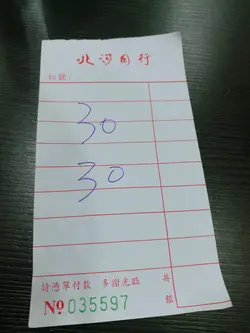 北河同行
枱號:
30
30
請憑單付款 多謝光臨
共銀
No 035597